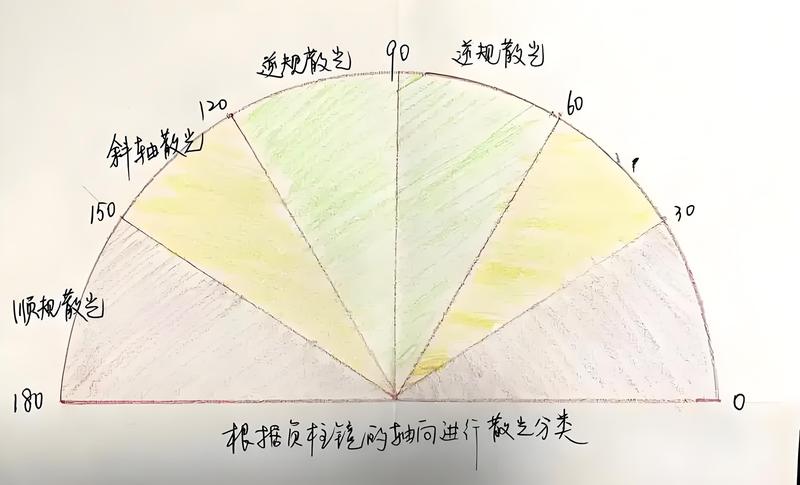 90
逆规散光
逆规散光
120
60
斜轴散光
150
30
顺规散光
180
0
根据负柱镜的轴向进行散光分类